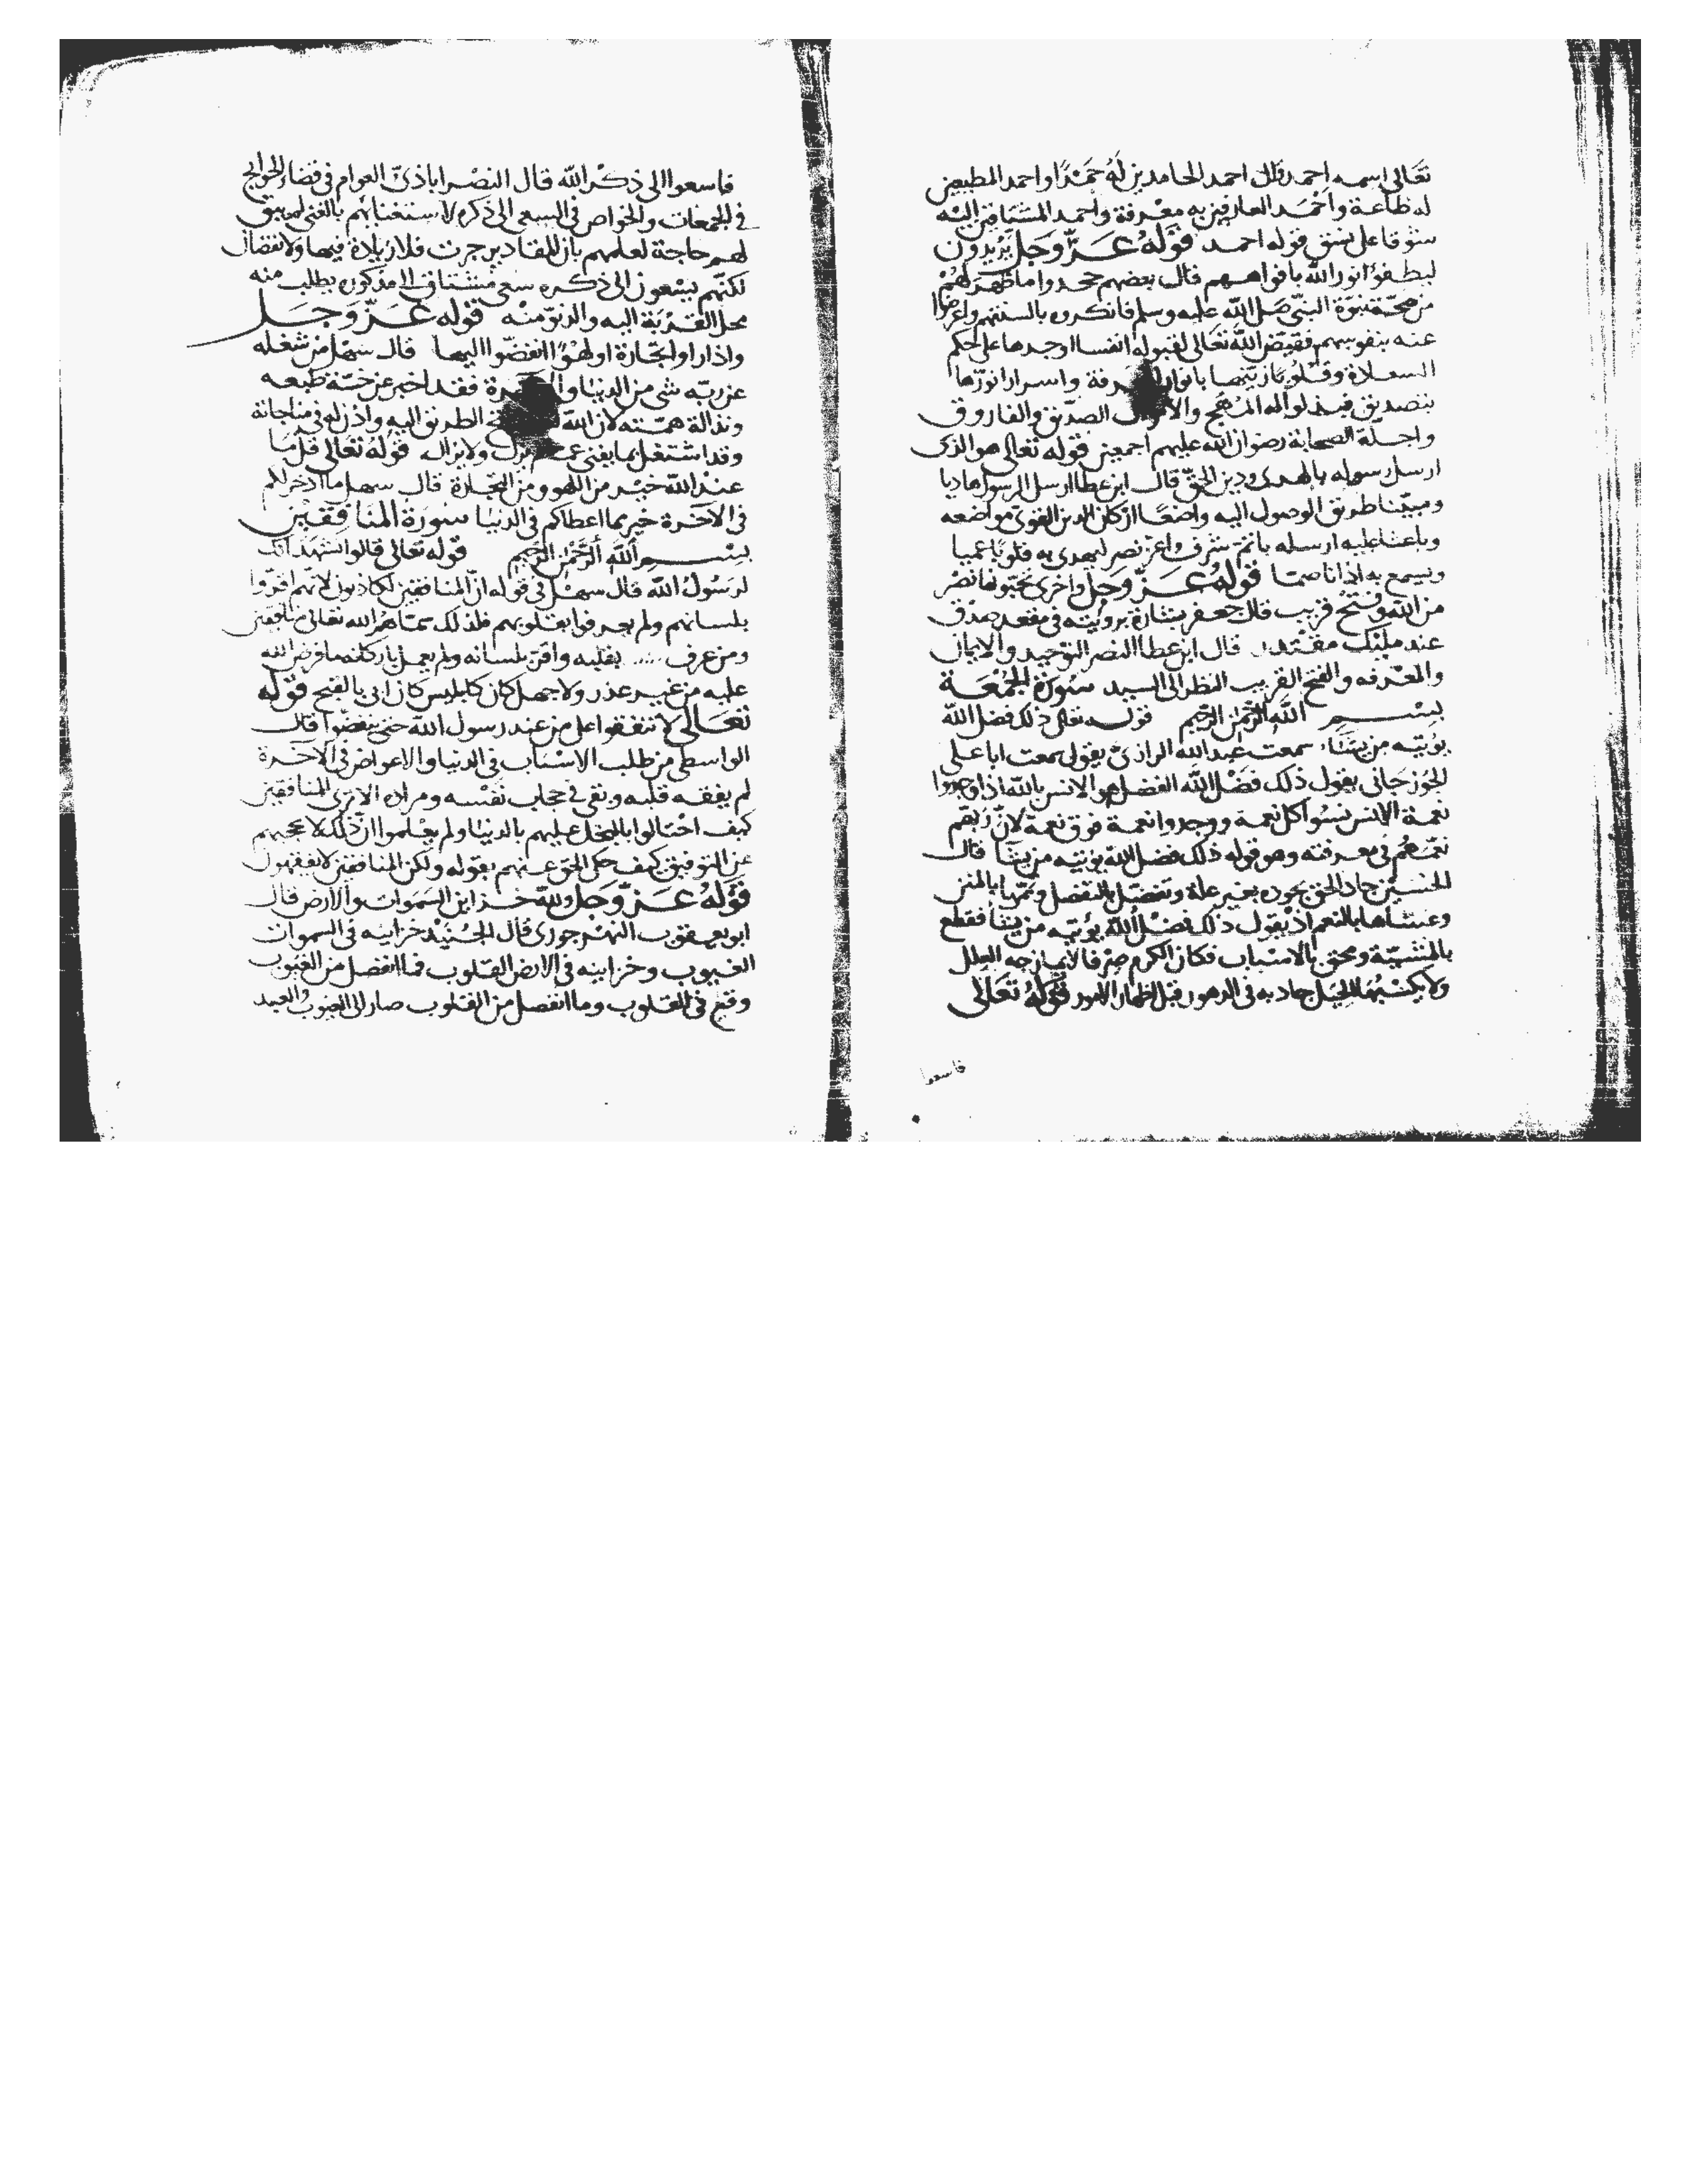 تعالى اسمه احمد قال احمد الحامدين له حمدًا واحمد المطيعين
له طاعة واحمد العارفين به معرفة واحمد المشتاقين اليه
شوقا على نسق قوله احمد قوله عز وجل يريدون
ليطفؤا نور الله بافواههم قال بعضهم جحدوا ما ظهر لهم
من صحة نبوة النبي صلى الله عليه وسلم فانكروه بالسنتهم واعرضوا
عنه بنفوسهم فقيض الله تعالى لقبوله انفسا اوجدها على حكم
السعادة وقلوبا زينها بانوار المعرفة واسرارا نورها
بتصديق فبذلوا له المهج والاموال الصديق والفاروق
واجلة الصحابة رضوان الله عليهم اجمعين قوله تعالى هو الذى
ارسل رسوله بالهدى ودين الحق قال ابن عطا ارسل الرسول هاديا
ومبينا طريق الوصول اليه واضعا اركان الدين القوى مواضعه
وباعثا عليه ارسله باتم شرف واعز نصر ليهدى به قلوبا عميا
ويسمع به اذانا صما قوله عز وجل واخرى تحبونها نصر
من الله وفتح قريب قال جعفر بشارة برؤيته فى مقعد صدق
عند مليك مقتدر قال ابن عطا النصر التوحيد والايمان
والمعرفه والفتح القريب النظر الى السيد سورة الجمعة
بسم الله الرحمن الرحيم قوله تعالى ذلك فضل الله
يؤتيه من يشاء سمعت عبد الله الرازى يقول سمعت ابا على
الجوزجانى يقول ذلك فضل الله الفضل هو الانس بالله اذا وجدوا
نعمة الانس نسوا كل نعمة ووجدوا نعمة فوق نعمة لان ربهم
نعمهم فى معرفته وهو قوله ذلك فضل الله يؤتيه من يشا قال
الحسين جاد الحق بجوده بغير علة وتفضل بالتفضل وتمها بالمنن
وغشاها بالنعم اذ يقول ذلك فضل الله يؤتيه من يشا فقطع
بالمشيّة ومحق بالاسباب فكان الكرم صرفا لا يمازجه العلل
ولا يكسبها الحيل جاد به فى الدهور قبل اظهار الامور قوله تعالى
فاسعوا
فاسعوا الى ذكر الله قال النصراباذى العوام فى قضاء الحوائج
فى الجمعات والخواص فى السعى الى ذكره لاستغنائهم بالغنى لم يبق
لهم حاجة لعلمهم بان المقادير جرت فلا زيادة فيها ولا نقصان
لكنهم يسعون الى ذكره سعى مشتاق الى مذكوره يطلب منه
محل القربة اليه والدنو منه قوله عز وجل
واذا راوا تجارة او لهوا انفضوا اليها قال سهل من شغله
عن ربه شى من الدنيا والاخرة فقد اخبر عن خسة طبعه
ونذالة همته لان الله الطريق اليه واذن له فى مناجاته
وقد اشتغل بما يفنى عمن لم يزل ولا يزال قوله تعالى قل ما
عند الله خير من اللهو ومن التجارة قال سهل ما ادخر لكم
فى الاخرة خير مما اعطاكم فى الدنيا سورة المنافقين
بسم الله الرحمن الرحيم قوله تعالى قالوا نشهد انك
لرسول الله قال سهل فى قوله ان المنافقين لكاذبون لانهم اقروا
بلسانهم ولم يعرفوا بقلوبهم فلذلك سماهم الله تعالى منافقين
ومن عرف بقلبه واقر بلسانه ولم يعمل باركانه ما فرض الله
عليه من غير عذر ولا جهل كان كابليس كان ابى بالقبح قوله
تعالى لا تنفقوا على من عند رسول الله حتى ينفضوا قال
الواسطى من طلب الاسباب فى الدنيا والاعواض فى الاخرة
لم يفقه قلبه وبقى فى حجاب نفسه ومراده الا ترى المنافقين
كيف احتالوا بالبخل عليهم بالدنيا ولم يعلموا ان ذلك لا يحجبهم
عن التوفيق كيف حكى الحق عنهم بقوله ولكن المنافقين لا يفقهون
قوله عز وجل ولله خزاين السموات والارض قال
ابو يعقوب النهرجورى قال الجنيد خزاينه فى السموات
الغيوب وخزاينه فى الارض القلوب فما انفصل من الغيوب
وقع فى القلوب وما انفصل من القلوب صار الى الغيوب والعبد